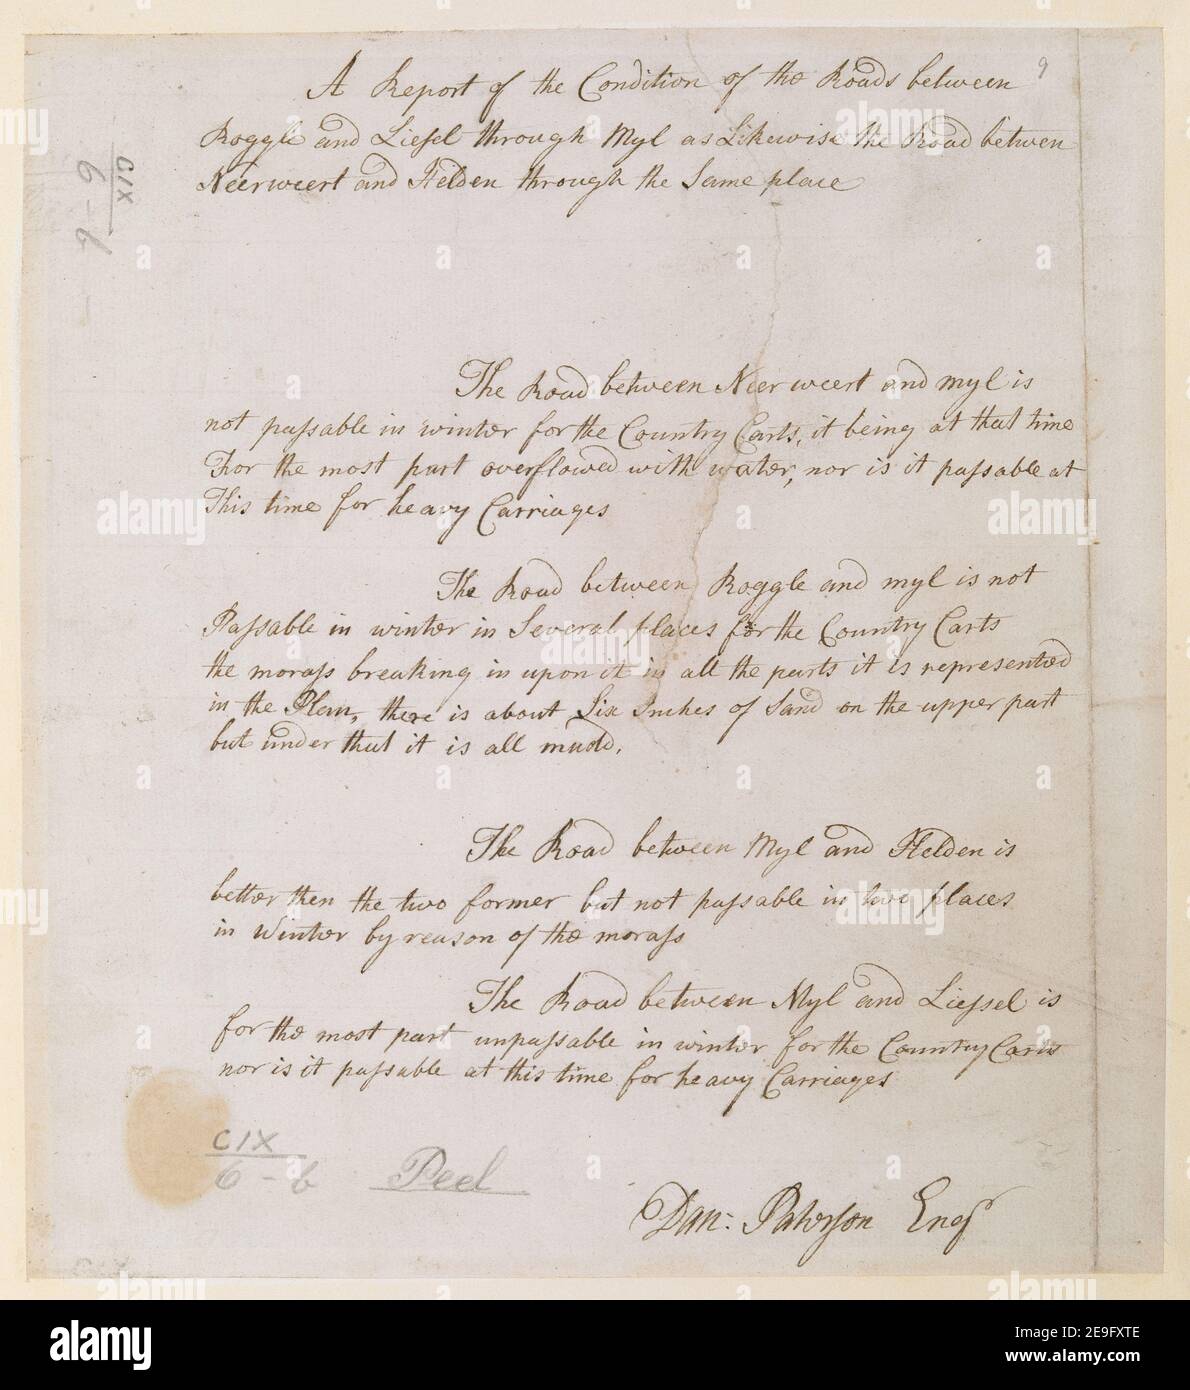 9
A Report of the Condition of the Roads between
Roggle and Liessel through Myl as Likewise the Road between
Neerweert and Helden through the Same place
CIX
6 - b
The Road between Neerweert and Myl is
not passable in winter for the Country Carts, it being at that time
For the most part overflowed with water, nor is it passable at
This time for heavy Carriages
The Road between Roggle and Myl is not
Passable in winter in Several places for the Country Carts
the morass breaking in upon it in all the parts it is represented
in the Plan, there is about Six Inches of Sand on the upper part
but under that it is all mudd.
The Road between Myl and Helden is
better then the two former but not passable in two places
in Winter by reason of the morass
The Road between Myl and Liessel is
for the most part unpassable in winter for the Country Carts
nor is it passable at this time for heavy Carriages
CIX
6 - b Peel
Dan: Paterson Engr
alamy
Image ID: 2E9FXTE
www.alamy.com